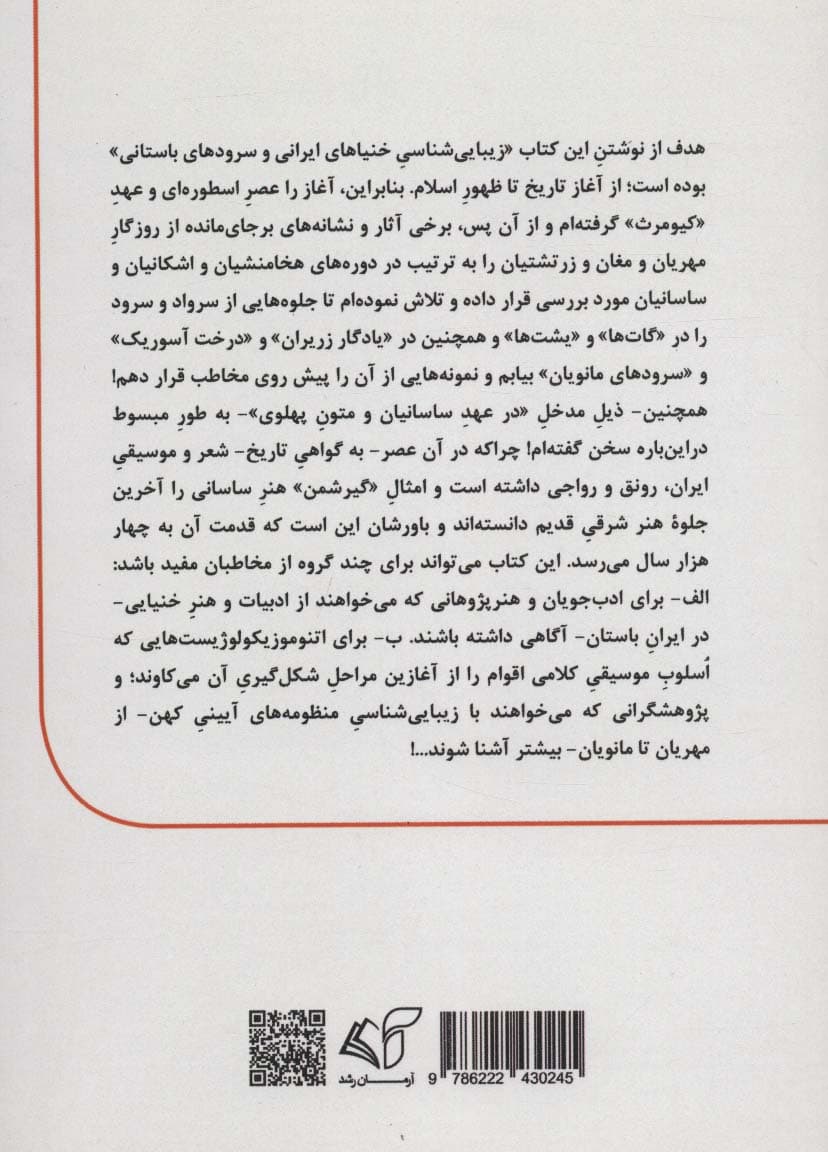 هدف از نوشتنِ این کتاب «زیبایی‌شناسیِ خنیاهای ایرانی و سرودهای باستانی»
بوده است؛ از آغاز تاریخ تا ظهورِ اسلام. بنابراین، آغاز را عصرِ اسطوره‌ای و عهدِ
«کیومرث» گرفته‌ام و از آن پس، برخی آثار و نشانه‌های برجای‌مانده از روزگارِ
مهریان و مغان و زرتشتیان را به ترتیب در دوره‌های هخامنشیان و اشکانیان و
ساسانیان مورد بررسی قرار داده و تلاش نموده‌ام تا جلوه‌هایی از سرواد و سرود
را در «گات‌ها» و «یشت‌ها» و همچنین در «یادگار زریران» و «درخت آسوریک»
و «سرودهای مانویان» بیابم و نمونه‌هایی از آن را پیش روی مخاطب قرار دهم!
همچنین- ذیلِ مدخلِ «در عهدِ ساسانیان و متونِ پهلوی»- به طورِ مبسوط
دراین‌باره سخن گفته‌ام! چراکه در آن عصر- به گواهیِ تاریخ- شعر و موسیقیِ
ایران، رونق و رواجی داشته است و امثالِ «گیرشمن» هنرِ ساسانی را آخرین
جلوهٔ هنر شرقیِ قدیم دانسته‌اند و باورشان این است که قدمت آن به چهار
هزار سال می‌رسد. این کتاب می‌تواند برای چند گروه از مخاطبان مفید باشد:
الف- برای ادب‌جویان و هنرپژوهانی که می‌خواهند از ادبیات و هنرِ خنیایی-
در ایرانِ باستان- آگاهی داشته باشند. ب- برای اتنوموزیکولوژیست‌هایی که
اُسلوبِ موسیقیِ کلامی اقوام را از آغازین مراحلِ شکل‌گیریِ آن می‌کاوند؛ و
پژوهشگرانی که می‌خواهند با زیبایی‌شناسیِ منظومه‌های آیینیِ کهن- از
مهریان تا مانویان- بیشتر آشنا شوند...!
آرمــان رشد
9 786222 430245